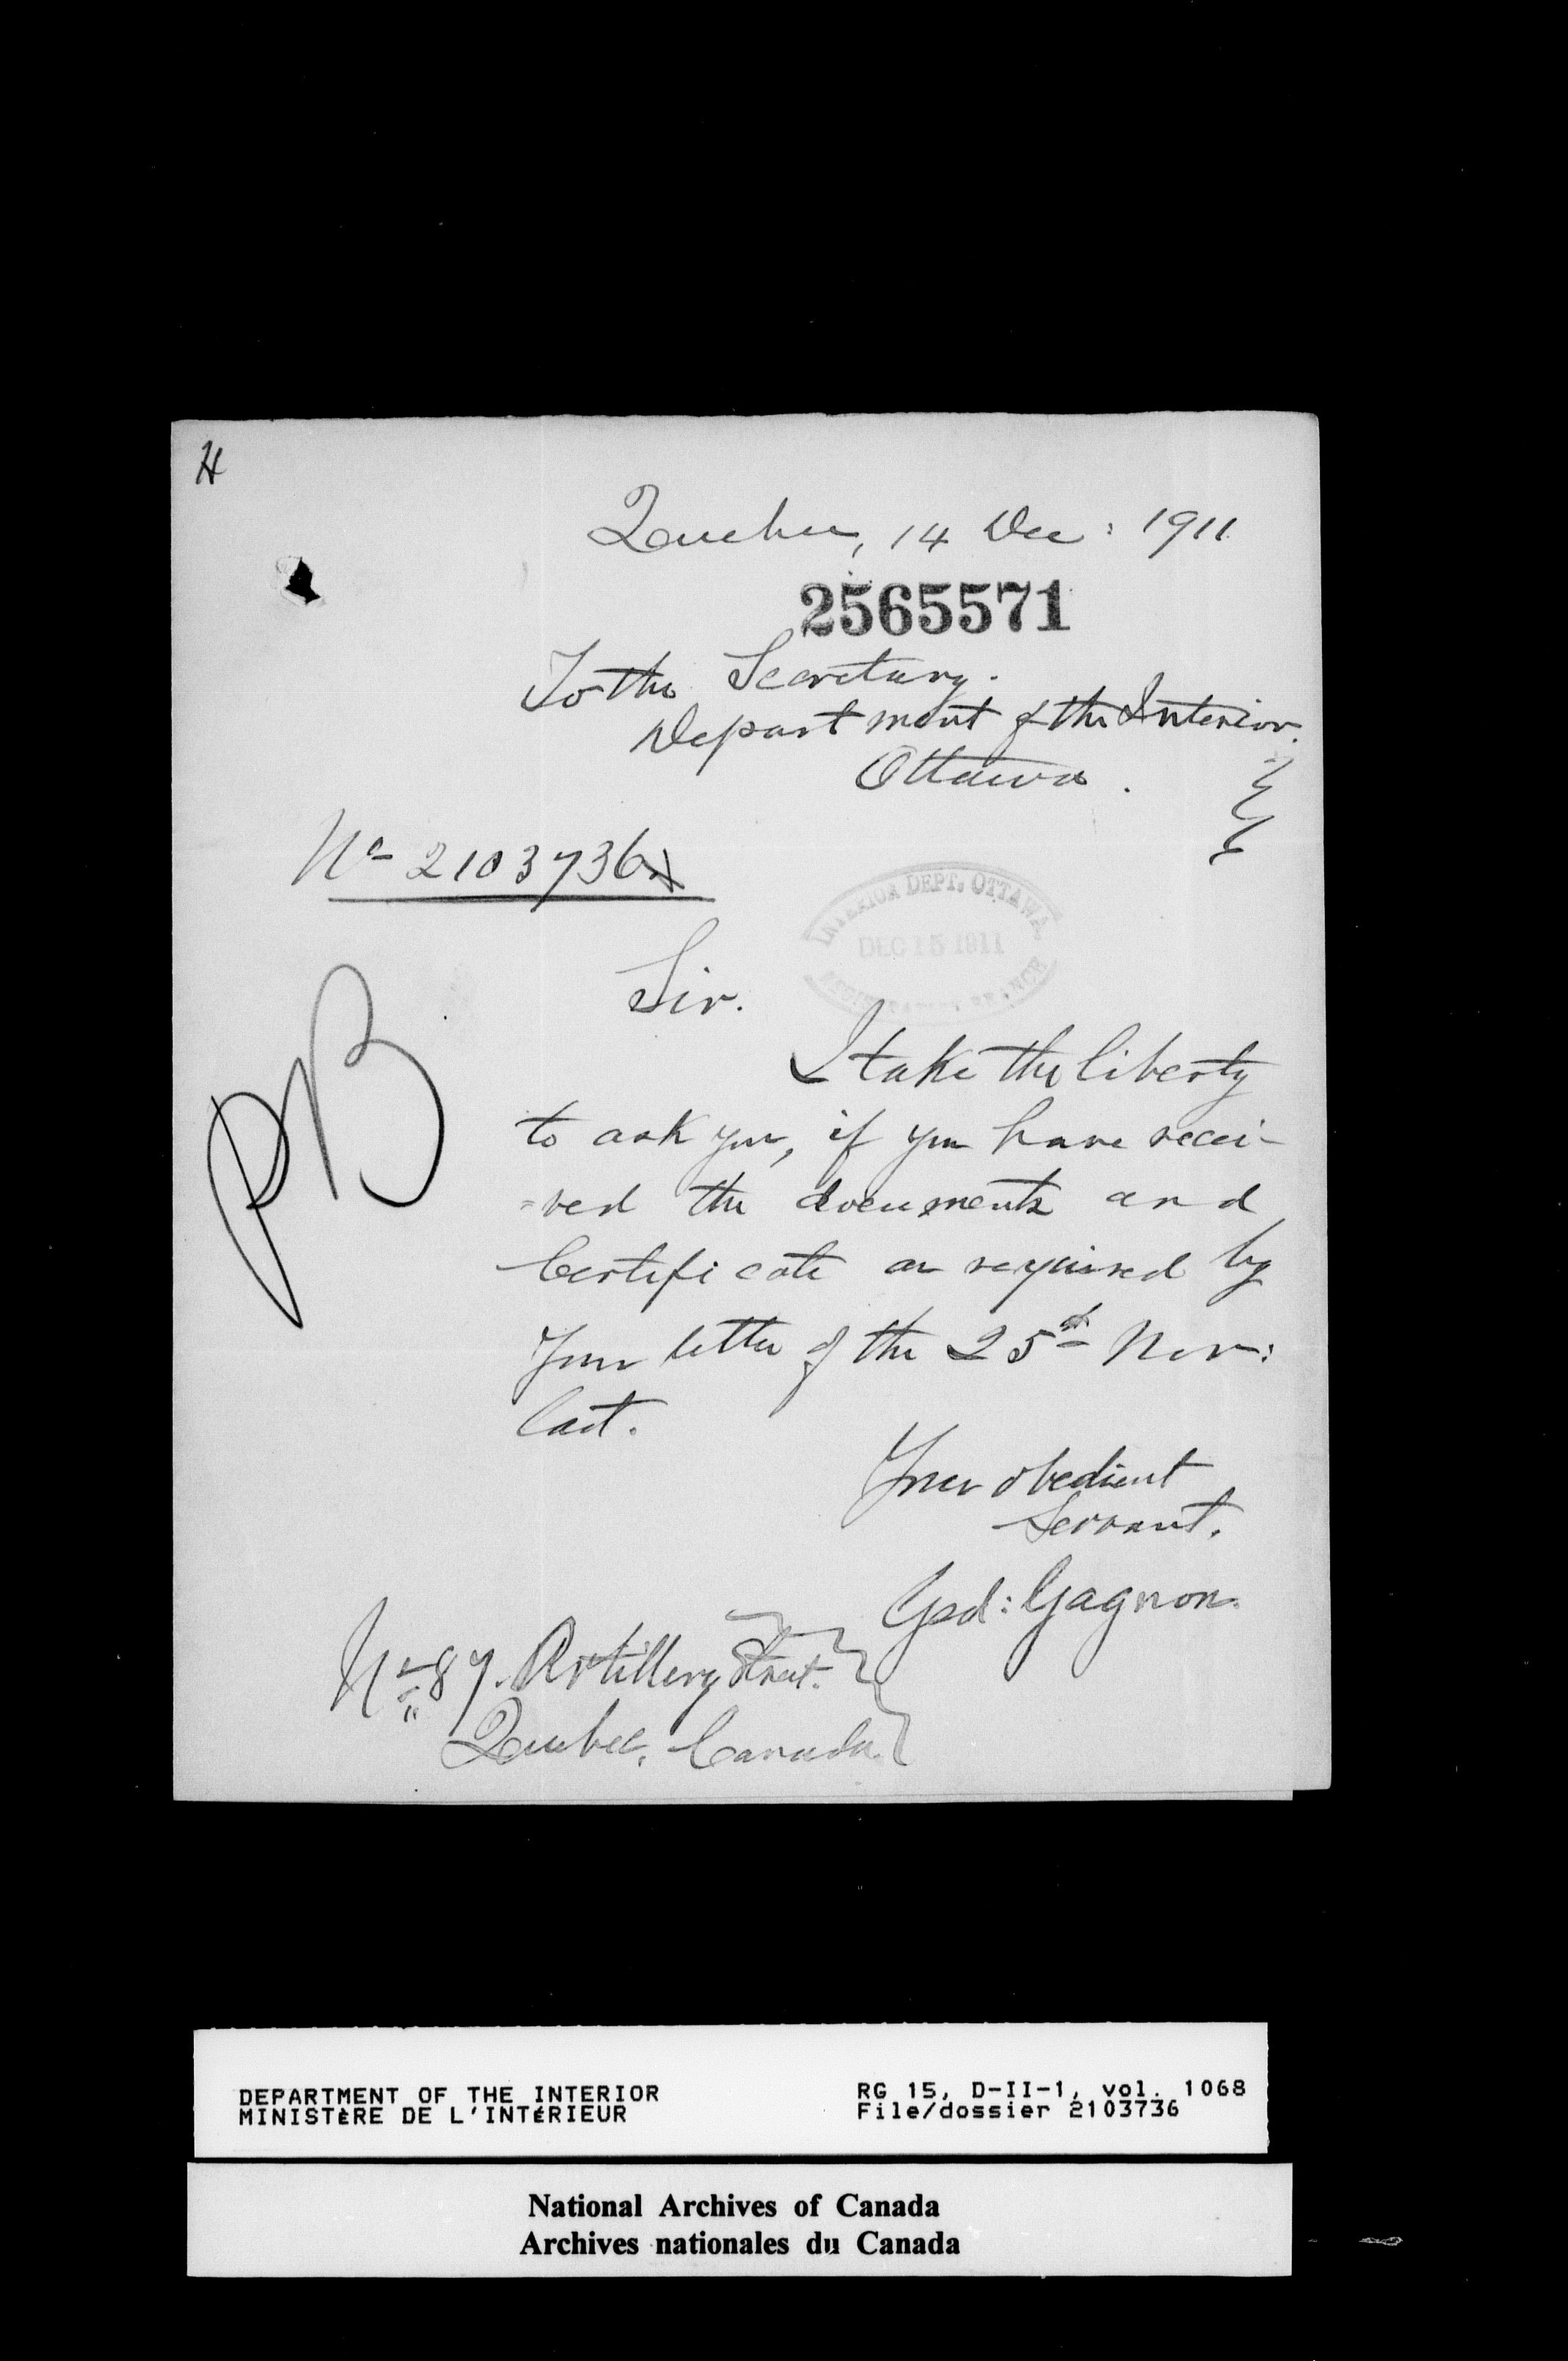 H
Quebec, 14 Dec: 1911
2565571
To the Secretary.
Department of the Interior.
Ottawa.
No 2103736
INTERIOR DEPT. OTTAWA
DEC 15 1911
BRANCH
Sir.
I take the liberty
to ask you, if you have recei-
=ved the documents and
Certificate as required by
Your letter of the 25th Nov:
last.
Your obedient
Servant.
Ged: Gagnon.
No 87. Artillery Street.
Quebec, Canada.
PB
DEPARTMENT OF THE INTERIOR
MINISTÈRE DE L'INTÉRIEUR
RG 15, D-II-1, vol. 1068
File/dossier 2103736
National Archives of Canada
Archives nationales du Canada